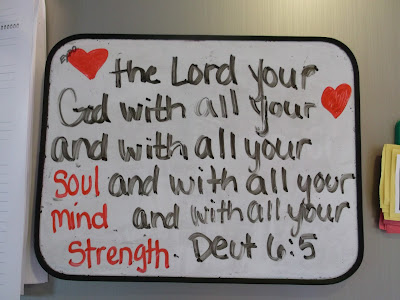 the Lord your
God with all your
and with all your
soul and with all your
mind and with all your
strength. Deut 6:5